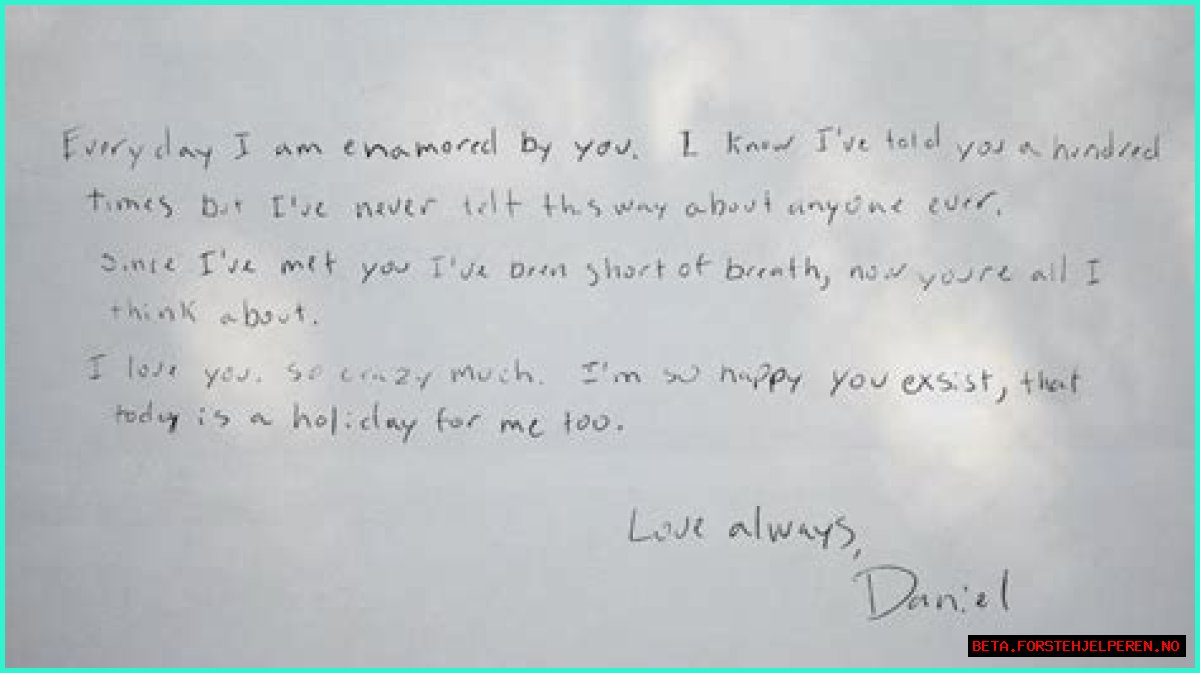 Everyday I am enamored by you. I know I've told you a hundred
times but I've never felt this way about anyone ever.
Since I've met you I've been short of breath, now you're all I
think about.
I love you. so crazy much. I'm so happy you exsist, that
today is a holiday for me too.
Love always,
Daniel
BETA.FORSTEHJELPEREN.NO